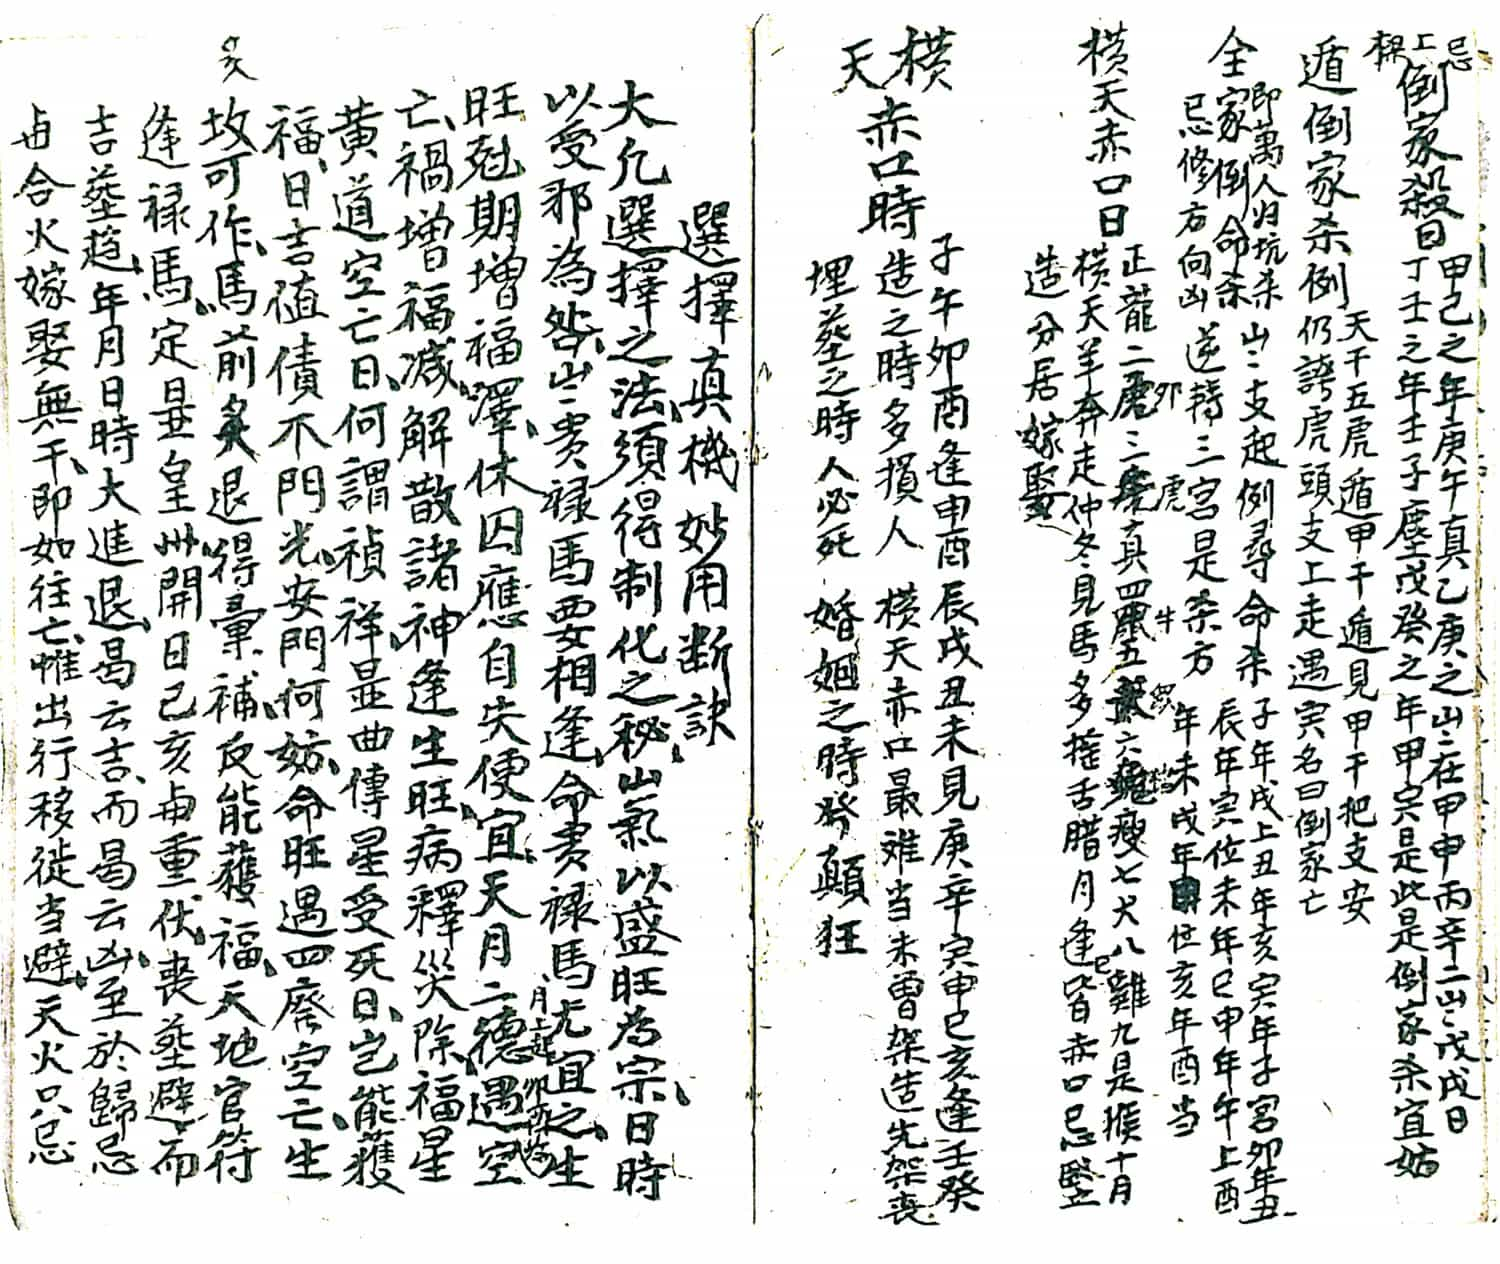 忌上樑
倒家殺日
甲己之年庚午真乙庚之山在甲申丙辛二山戊戌日
丁壬之年壬子塵戊癸之年甲寅是此是倒家杀宜妨
遁倒家杀例
天干五虎遁甲干遁見甲干把支安
仍誇虎頭支上走遇寅名曰倒家亡
即萬人归坑杀
全家倒命杀
忌修方向凶
山支起例尋命杀
逆轉三宫是杀方
子年戌上丑年亥寅年子宮卯年丑
辰年寅位未年巳申年午上酉
年未戌年申位亥年酉当
横天赤口日
正龍二虎三真四鼠五六瘦七犬八雞九是猴十月
横天羊奔走仲冬見馬多搉舌腊月逢皆赤口忌竪
造分居嫁娶
横天赤口時
子午卯酉逢申酉辰戌丑未見庚辛寅申巳亥逢壬癸
造之時多損人横天赤口最难当未曽架造先架喪
埋塟之時人必死婚姻之時癸顛狂
選擇真機妙用断訣
大凢選擇之法須得制化之秘山氣以盛旺為宗日時
以受邪為咎山貴禄馬要相逢命貴禄馬尤宜之生
旺尅期增福澤休囚應自失便宜天月二德遇空
月上起卯
亡禍增福减解散諸神逢生旺病釋災除福星
黄道空亡日何謂禎祥昰曲傳星受死日岂能獲
福日吉值債不門光安門何妨命旺遇四廢空亡生
坟可作馬前炙退得稟補反能獲福天地官符
亥
逢禄馬定昰皇州開日己亥卤重伏喪塟避而
吉塟趋年月日時大進退曷云吉而曷云凶至於歸忌
卤合火嫁娶無干即如往亡惟出行移徙当避天火只忌